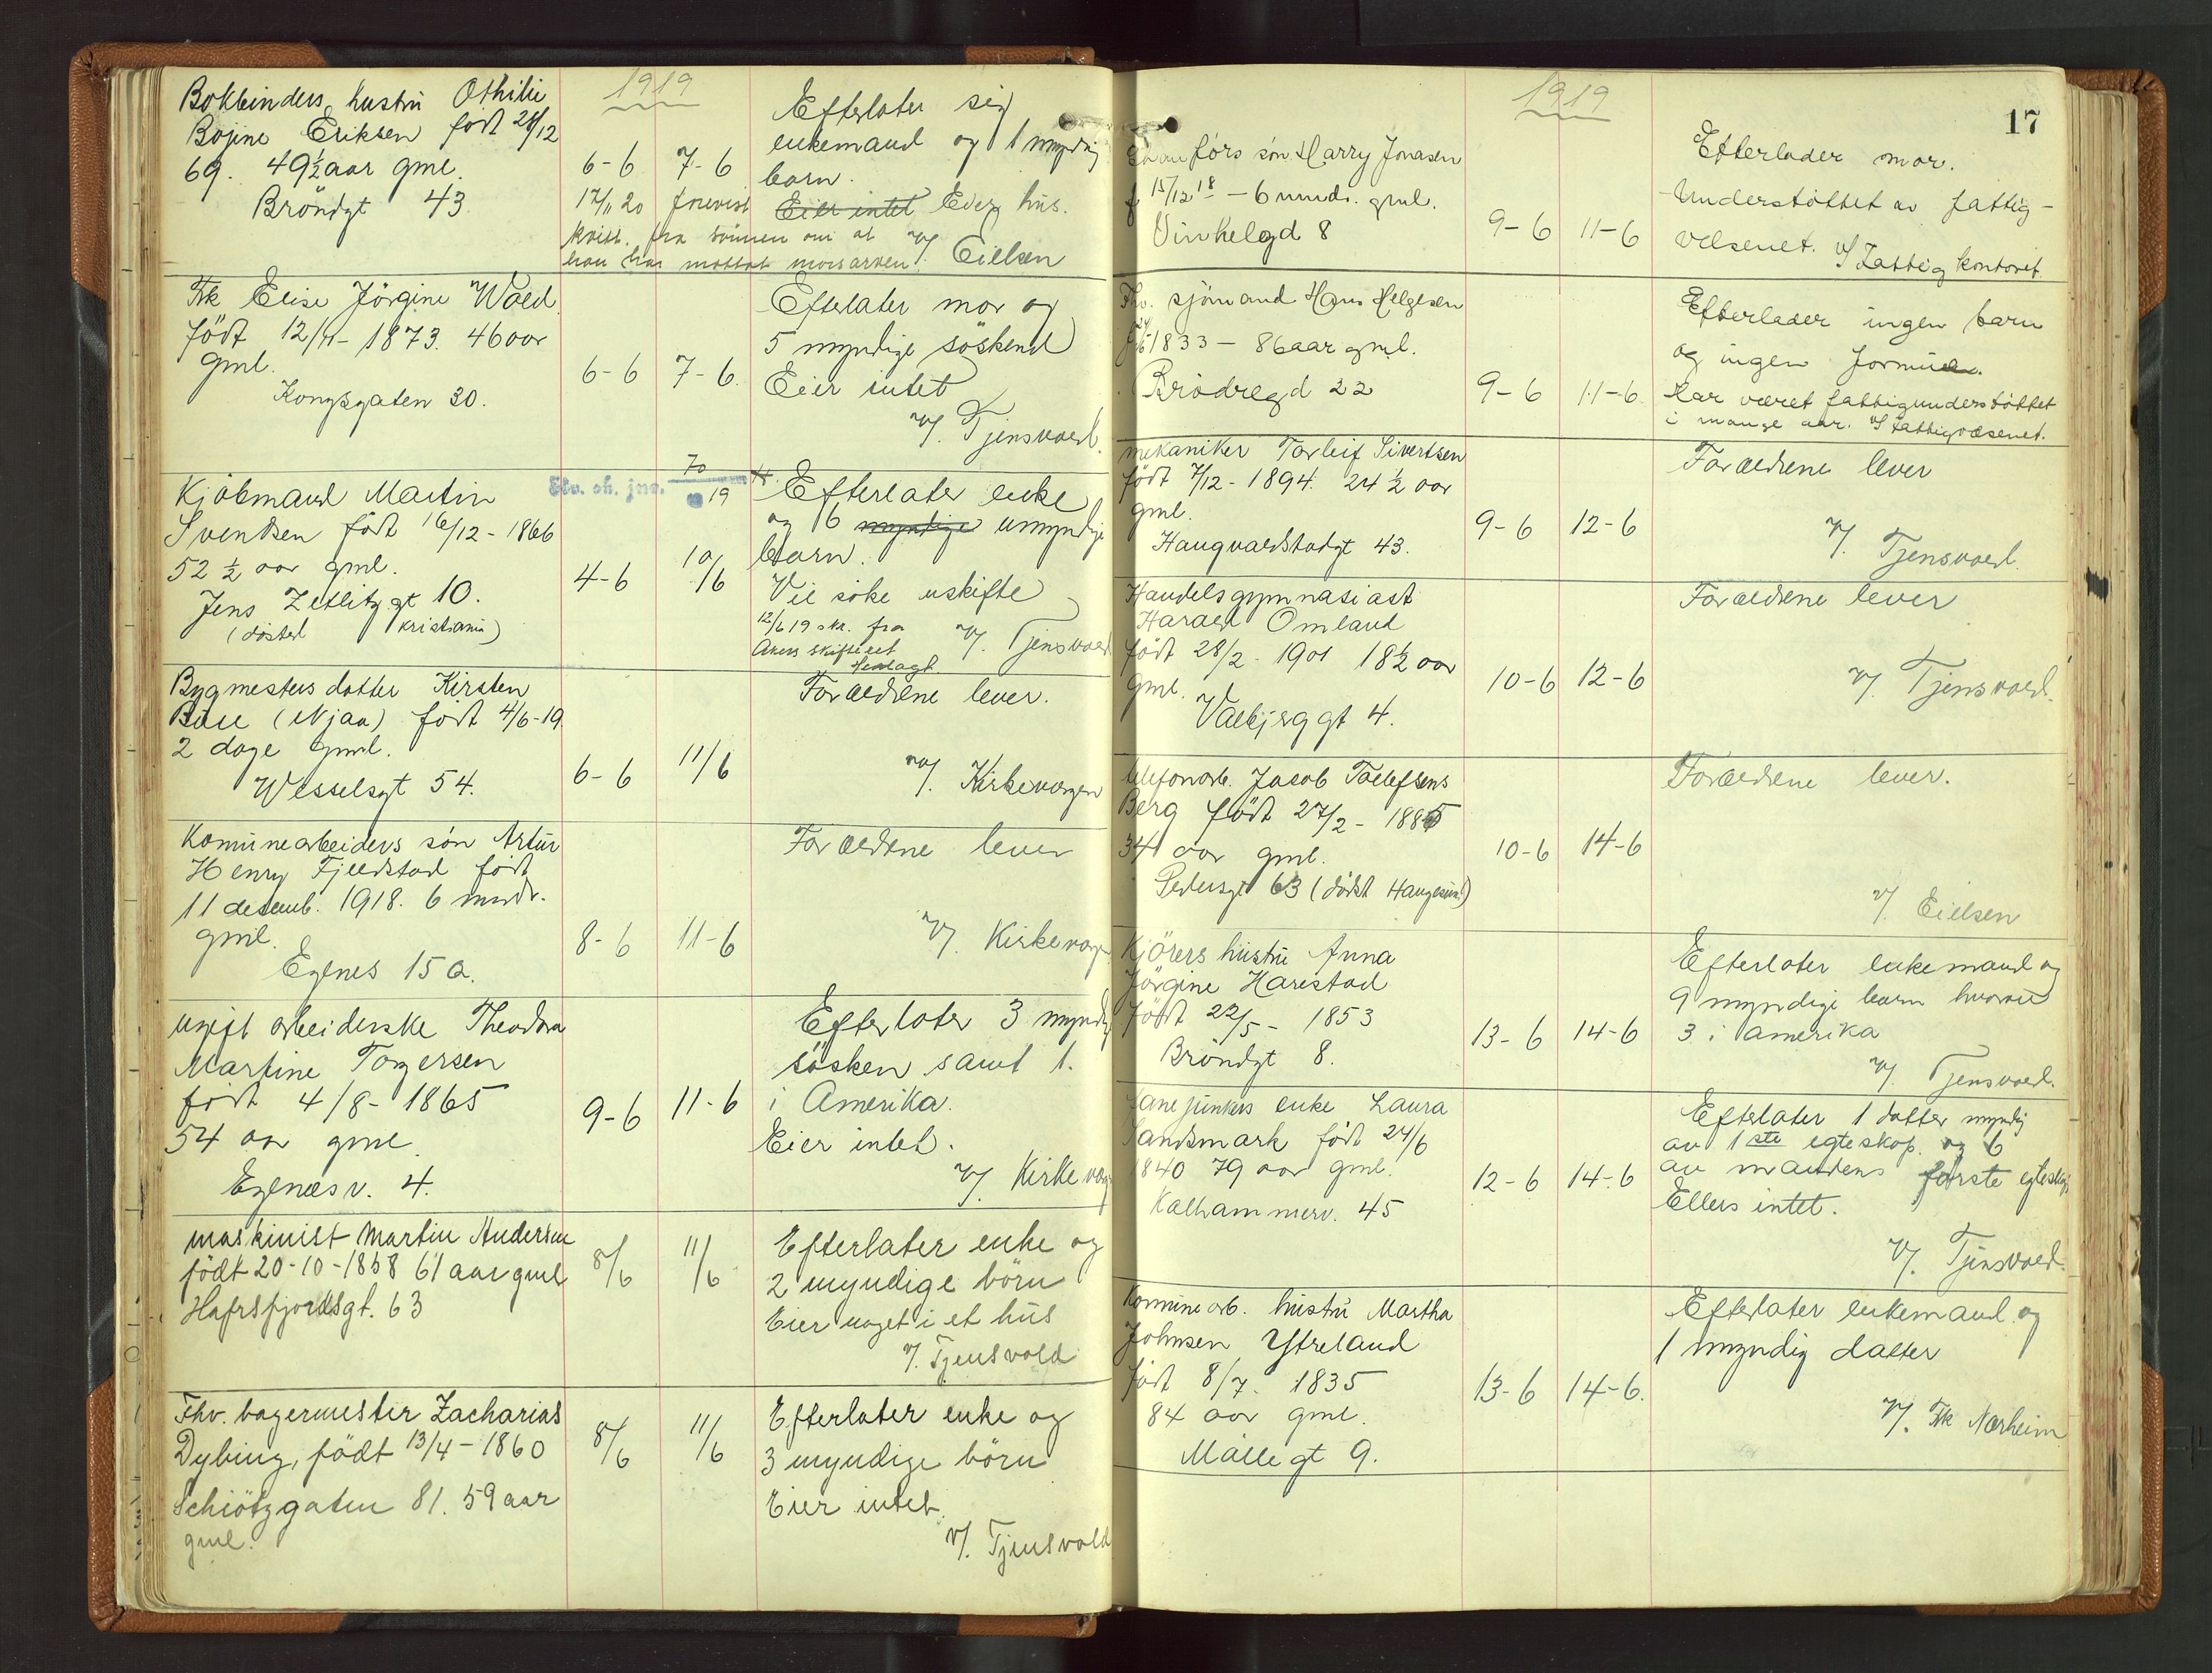 1919
Bokbinders hustru Othilie
Bojine Eriksen født 28/12
69. 49½ aar gml.
Bröndgt 43
6-6 7-6
Efterlater sig
enkemand og 1 myndig
barn.
Eier intet Eier hus.
17/11 20 forevist
kvitt. fra sönnen om at
han har mottat morsarven. v/ Eielsen
Frk Elise Jörgine Wold
født 12/4- 1873. 46 aar
gml.
Kongsgaten 30.
6-6 7-6.
Efterlater mor og
5 myndige söskend
Eier intet
v/. Tjensvold.
Kjöbmand Martin
Svendsen født 16/12-1866
52 ½ aar gml.
Jens Zetlitzgt 10.
(död sted Kristiania)
4-6 10/6
70
19
Efterlater enke
og 6 myndige umyndige
barn.
Vil söke uskifte
12/6 19 skr. fra
Akers skifteret
henlagt.
v/. Tjensvold
Bygmesters datter Kirsten
Bue (Njaa) født 4/6-19
2 dage gml.
Wesselsgt 54.
6-6 11/6
Forældrene lever.
v/. Kirkevergen
Komunearbeiders sön Artur
Henry Fjeldstad født
11 desemb. 1918. 6 mndr.
gml.
Egenes 15a.
8-6 11-6
Forældrene lever
v/. Kirkeverge
ugift arbeiderske Theodora
Martine Torgersen
født 4/8- 1865
54 aar gml.
Egenæsv. 4.
9-6 11-6
Efterlater 3 myndig
sösken samt 1.
i Amerika.
Eier intet.
v/. Kirkeverg
maskinist Martin Andersen
födt 20-10-1858 61 aar gml
Hafrsfjordsgt. 63
8/6 11/6
Efterlater enke og
2 myndige börn
Eier noget i et hus
v/. Tjensvold
Fhv. bagermester Zacharias
Dybing, födt 13/4-1860
Schiötzgaten 81. 59 aar
gml.
8/6 11/6
Efterlater enke og
3 myndige börn
Eier intet.
v/. Tjensvold
1919
17
Chauförs sön Harry Jonasen
f 15/12 18 - 6 mnds. gml.
Vinkelgd 8
9-6 11-6
Efterlader mor.
Understöttet av fattig-
væsenet. v/ Fattigkontoret.
Fhv. sjömand Hans Helgesen
1833 - 86 aar gml.
Brödregd 22
9-6 11-6
Efterlader ingen barn
og ingen formue.
Har været fattigunderstöttet
i mange aar. v/ Fattigvæsenet.
mekaniker Torleif Sivertsen
født 7/12-1894. 24 ½ aar
gml.
Haugvaldstadgt 43.
9-6 12-6
Forældrene lever
v/. Tjensvold.
Handelsgymnasiast
Harald Omland
født 28/2-1901 18½ aar
gml.
Valbjerggt 4.
10-6 12-6
Forældrene lever
v/. Tjensvold.
telefonarb. Jacob Tollefsens
Berg født 27/2-1885
34 aar gml.
Pedersgt 63 (dödst Haugesund)
10-6 14-6
Forældrene lever.
v/. Eielsen
Kjörers hustru Anna
Jörgine Harestad
født 22/5- 1853
Bröndgt 8.
13-6 14-6
Efterlater enkemand og
9 myndige barn hvorav
3 i Amerika
v/. Tjensvold.
enke Laura
Sandsmark født 24/6
1840 79 aar gml.
Kalhammerv. 45
12-6 14-6
Efterlater 1 datter myndig
av 1ste egteskap. og 6
av mandens første egteskap
Ellers intet.
v/. Tjensvold.
Komunearb. hustru Martha
Johnsen Ytreland
født 8/7. 1835
84 aar gml.
Möllegt 9.
13-6 14-6.
Efterlater enkemand og
1 myndig datter
v/. Frk Nærheim